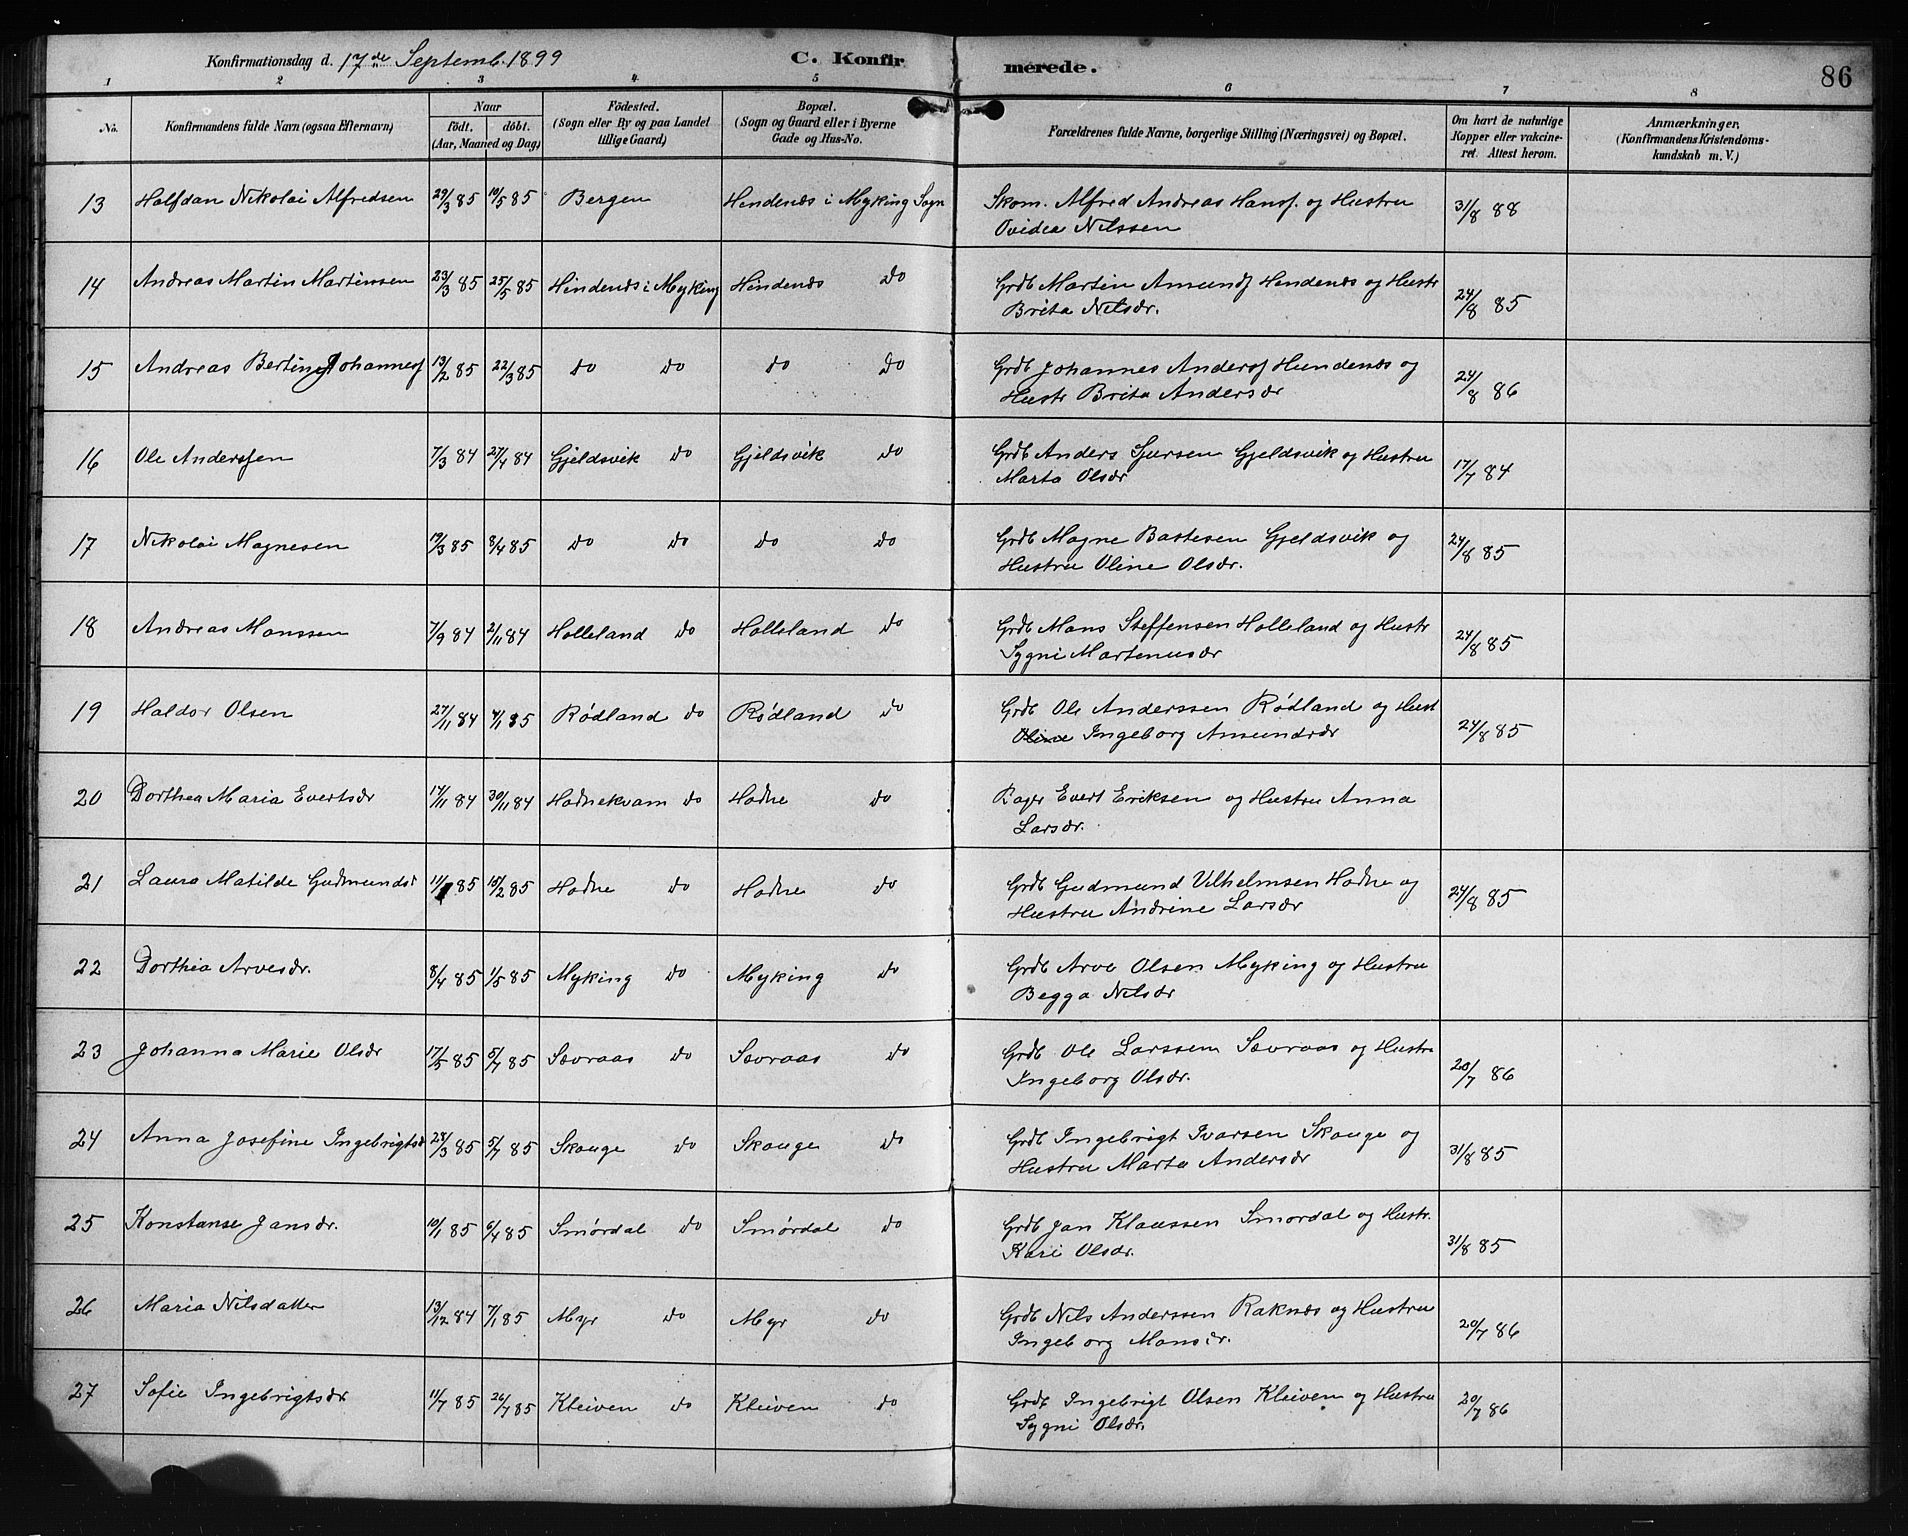 Konfirmationsdag d. 17de Septemb. 1899 C. Konfirmerede. 86
1 2 3 4 5 6 7 8
No. Konfirmandens fulde Navn (ogsaa Efternavn) Naar født. døbt. (Aar, Maaned og Dag) Fødested. (Sogn eller By og paa Landet tillige Gaard) Bopæl. (Sogn og Gaard eller i Byerne Gade og Hus-No. Forældrenes fulde Navne, borgerlige Stilling (Næringsvei) og Bopæl. Om havt de naturlige Kopper eller vakcineret. Attest herom. Anmærkninger, (Konfirmandens Kristendomskundskab m. V.)
13 Halfdan Nikolai Alfredsen 29/3 85 10/5 85 Bergen Hindenæs i Myking Sogn Skom. Alfred Andreas Hansf. og Hustru 31/8 88
Ovidea Nilssen
14 Andreas Martin Martinsen 23/3 85 25/5 85 Hindenæs i Myking Hindenæs do Grdb Martin Amundf Hindenæs og Hustr 24/8 85
Brita Nilsdr.
15 Andreas Bertin Johannesf 13/2 85 22/3 85 do do do do Grdb Johannes Andersf Hindenæs og 24/8 86
Hustr Brita Andersdr
16 Ole Anderssen 7/3 84 27/4 84 Gjeldsvik do Gjeldsvik do Grdb Anders Sjursen Gjeldsvik og Hustru 17/7 84
Marta Olsdr
17 Nikolai Magnesen 19/3 85 8/4 85 do do do do Grdb Magne Bastesen Gjeldsvik og 24/8 85
Hustru Oline Olsdr.
18 Andreas Monssen 7/9 84 2/11 84 Holleland do Holleland do Grdb Mons Steffensen Holleland og Hustr 24/8 85
Sygni Martenusdr
19 Haldor Olsen 27/11 84 4/1 85 Rødland do Rødland do Grdb Ole Anderssen Rødland og Hust 24/8 85
Oline Ingeborg Amundsdr
20 Dorthea Maria Evertsdr 17/11 84 30/11 84 Hodnekvam do Hodne do Bager Evert Eriksen og Hustru Anna
Larsdr.
21 Laura Matilde Gudmundsd 11/1 85 15/2 85 Hodne do Hodne do Grdb Gudmund Vilhelmsen Hodne og 24/8 85
Hustru Andrine Larsdr
22 Dorthea Arvesdr. 8/4 85 1/5 85 Myking do Myking do Grdb Arve Olsen Myking og Hustru
Begga Nilsdr
23 Johanna Marie Olsdr 17/5 85 5/7 85 Sævraas do Sævraas do Grdb Ole Larssen Sævraas og Hustru 20/7 86
Ingeborg Olsdr.
24 Anna Josefine Ingebrigtsd 28/3 85 5/7 85 Skauge do Skauge do Grdb Ingebrigt Ivarsen Skauge og 31/8 85
Hustru Marta Andersdr
25 Konstanse Jansdr. 10/1 85 6/4 85 Smørdal do Smørdal do Grdb Jan Klaussen Smørdal og Hustr. 31/8 85
Kari Olsdr.
26 Maria Nilsdatter 13/12 84 7/1 85 Myr do Myr do Grdb Nils Anderssen Raknæs og Hustru 20/7 86
Ingeborg Monsdr.
27 Sofie Ingebrigtsdr 11/7 85 26/7 85 Kleiven do Kleiven do Grdb Ingebrigt Olsen Kleiven og Hustru 20/7 86
Sygni Olsdr.